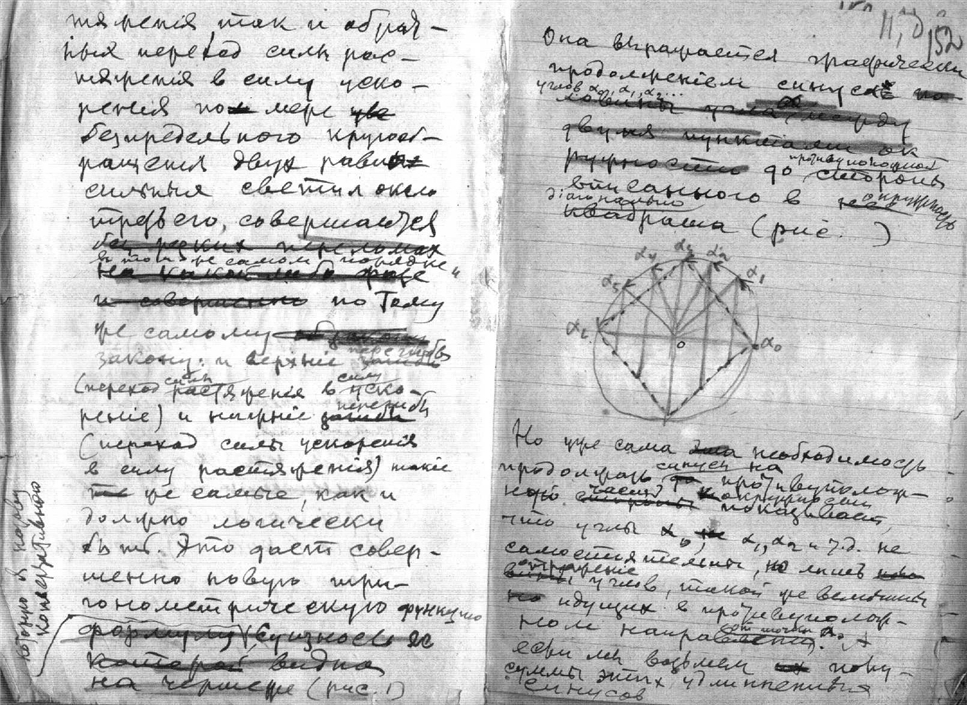 тяженія так и обрат-
ный переход силы рас-
тяженія в силу уско-
ренія по мере
безпредельного кругооб-
ращенія двух равно
сильных светил около
третьего, совершается
без резких переломах
в том же самом порядке
на какой либо фазе
и совершенно по тому
же самому
закону: и верхніе перегибы
(переход силы растяженія в силу уско-
ренія) и нижніе перегибы
(переход силы ускоренія
в силу растяженія) такіе
же самые, как и
должно логически
быть. Это дает совер-
шенно новую три-
гонометрическую функцію
формулу, сущность ея
которой видна
на чертеже (рис. 1)
152
Она выражается графически
продолженіем синуса
углов α₀, α₁, α₂...
двумя пунктами ок
ружности до противуположной стороны
вписанного в окружность
діагонально
квадрата (рис. )
α₆ α₅ α₄ α₃ α₂ α₁ α₀
0
Но уже сама необходимость
продолжать синусы на противуполож-
ную часть окружности показывает,
что углы α₀, α₁, α₂ и т.д. не
самостоятельны, но лишь
отраженіе углов, такой же величины
но идущих в противуполож-
ном направленіи от точки A₀. А
если мы возьмем
суммы этих удлиненных
синусов